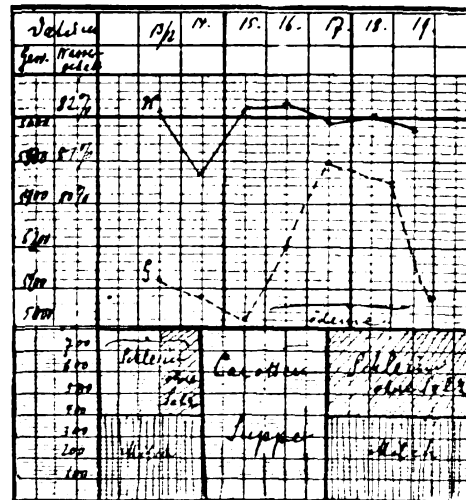 Datum 13/2 14. 15. 16. 17. 18. 19.
Gew. Wasser-
gehalt
82%
81%
80%
5200
5100
5000
G
ödeme
700
600
500
400
300
200
100
Schleim
ohne
Salz
Carotten
Suppe
Schleim
ohne Salz
Milch
Milch